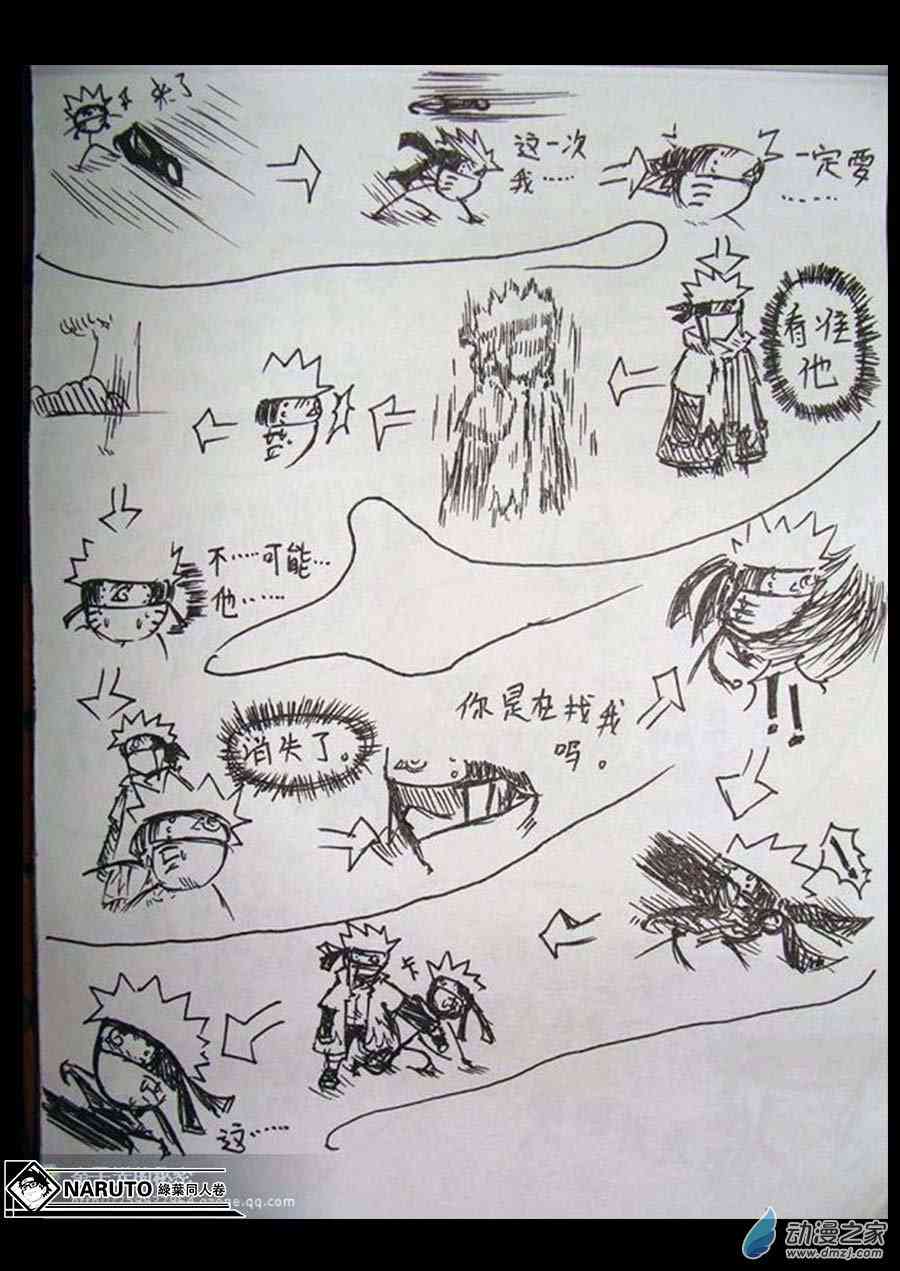 来了
这一次
我……
一定要
……
看准
他
不……可能…
他……
消失了。
你是在找我
吗。
!!
!!
卡
这……
NARUTO 綠葉同人卷
动漫之家
www.dmzj.com